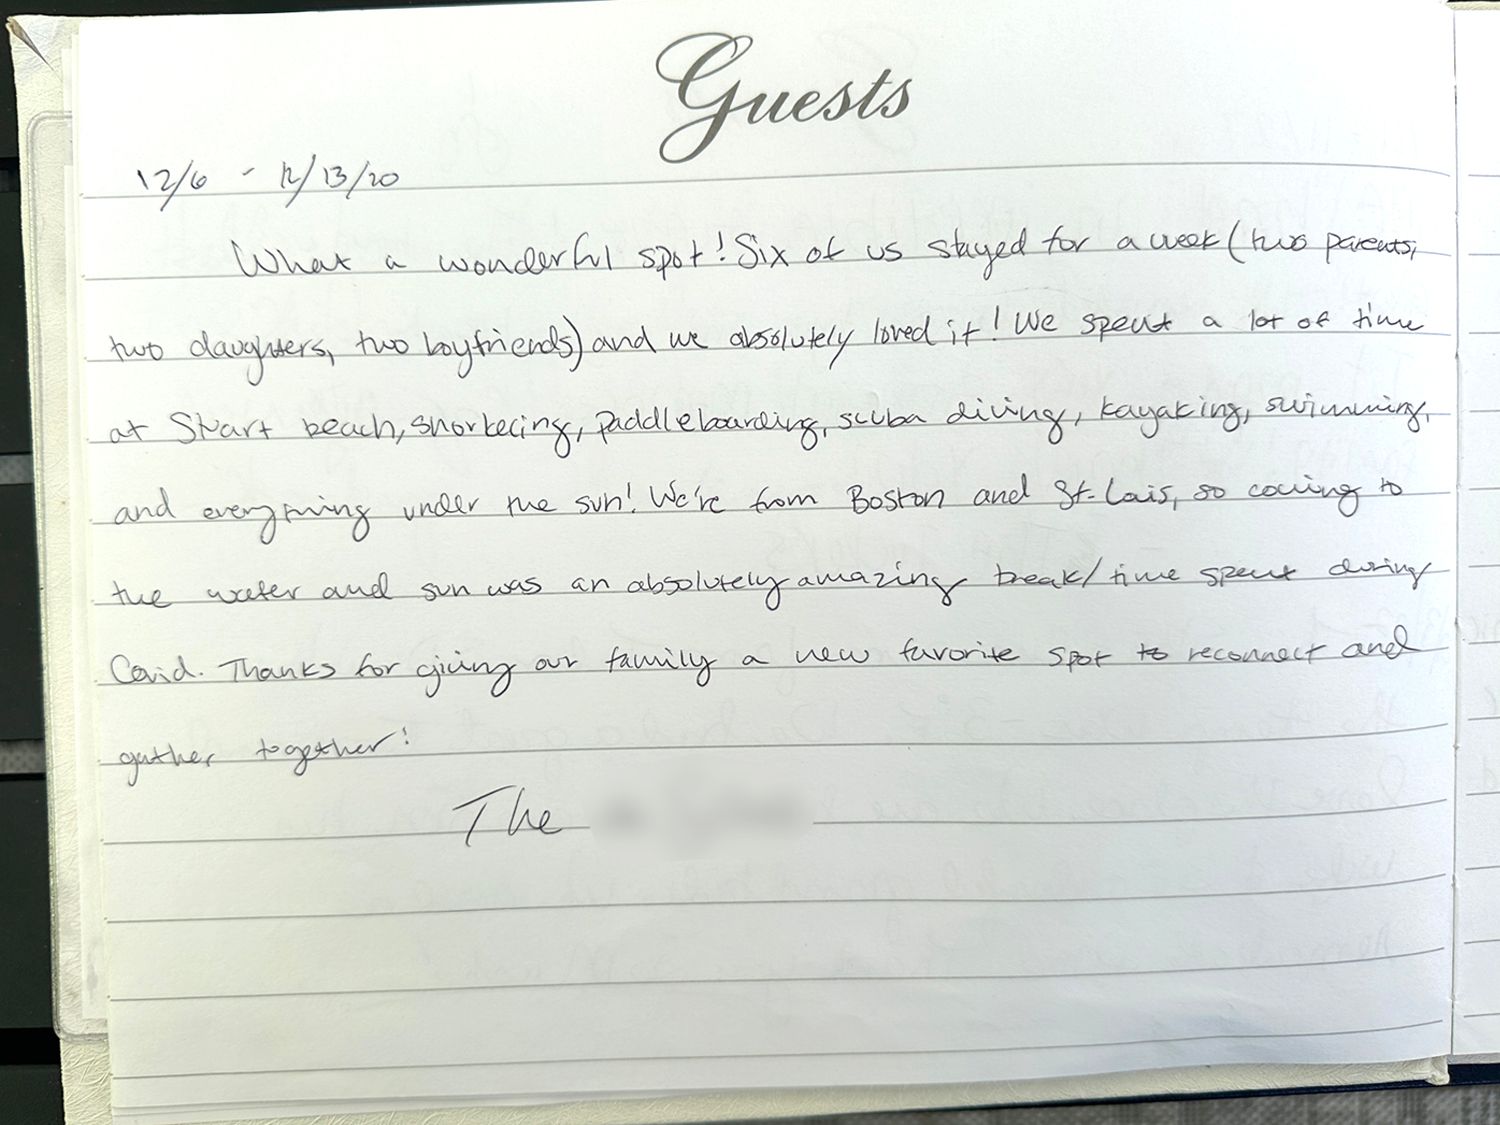 Guests
12/6 - 12/13/20
What a wonderful spot! Six of us stayed for a week (two parents,
two daughters, two boyfriends) and we absolutely loved it! We spent a lot of time
at Stuart beach, snorkeling, paddleboarding, scuba diving, kayaking, swimming,
and everything under the sun! We're from Boston and St. Louis, so coming to
the water and sun was an absolutely amazing break/time spent during
Covid. Thanks for giving our family a new favorite spot to reconnect and
gather together!
The